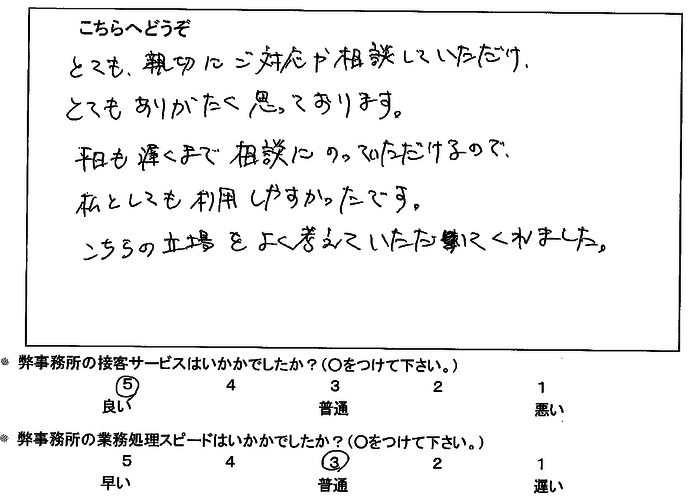 こちらへどうぞ
とても、親切にご対応や相談していただけ、
とてもありがたく思っております。
平日も遅くまで相談にのっていただけるので、
私としても利用しやすかったです。
こちらの立場をよく考えていただいてくれました。
※ 弊事務所の接客サービスはいかかでしたか？（〇をつけて下さい。）
5 4 3 2 1
良い 普通 悪い
※ 弊事務所の業務処理スピードはいかかでしたか？（〇をつけて下さい。）
5 4 3 2 1
早い 普通 遅い